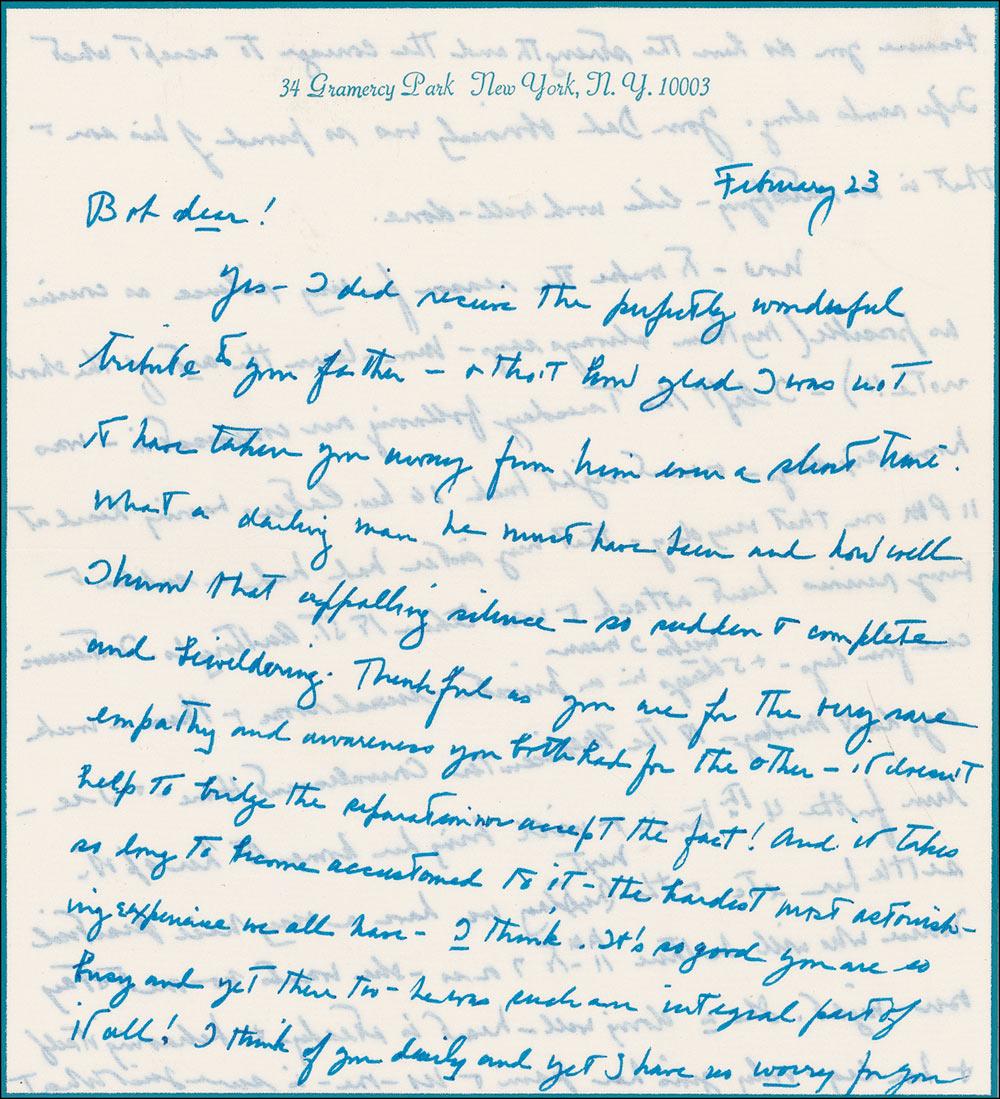 34 Gramercy Park New York, N. Y. 10003
February 23
Bob dear!
Yes - I did receive the perfectly wonderful
tribute to your father - & tho't how glad I was not
to have taken you away from him even a short time.
What a darling man he must have been and how well
I know that appalling silence - so sudden & complete
and bewildering. Thankful as you are for the very rare
empathy and awareness you both had for the other - it doesn't
help to bridge the separation nor accept the fact! And it takes
so long to become accustomed to it - the hardest most astonish-
ing experience we all have - I think. It's so good you are so
busy and yet there too - he was such an integral part of
it all! I think of you daily and yet I have no worry for you